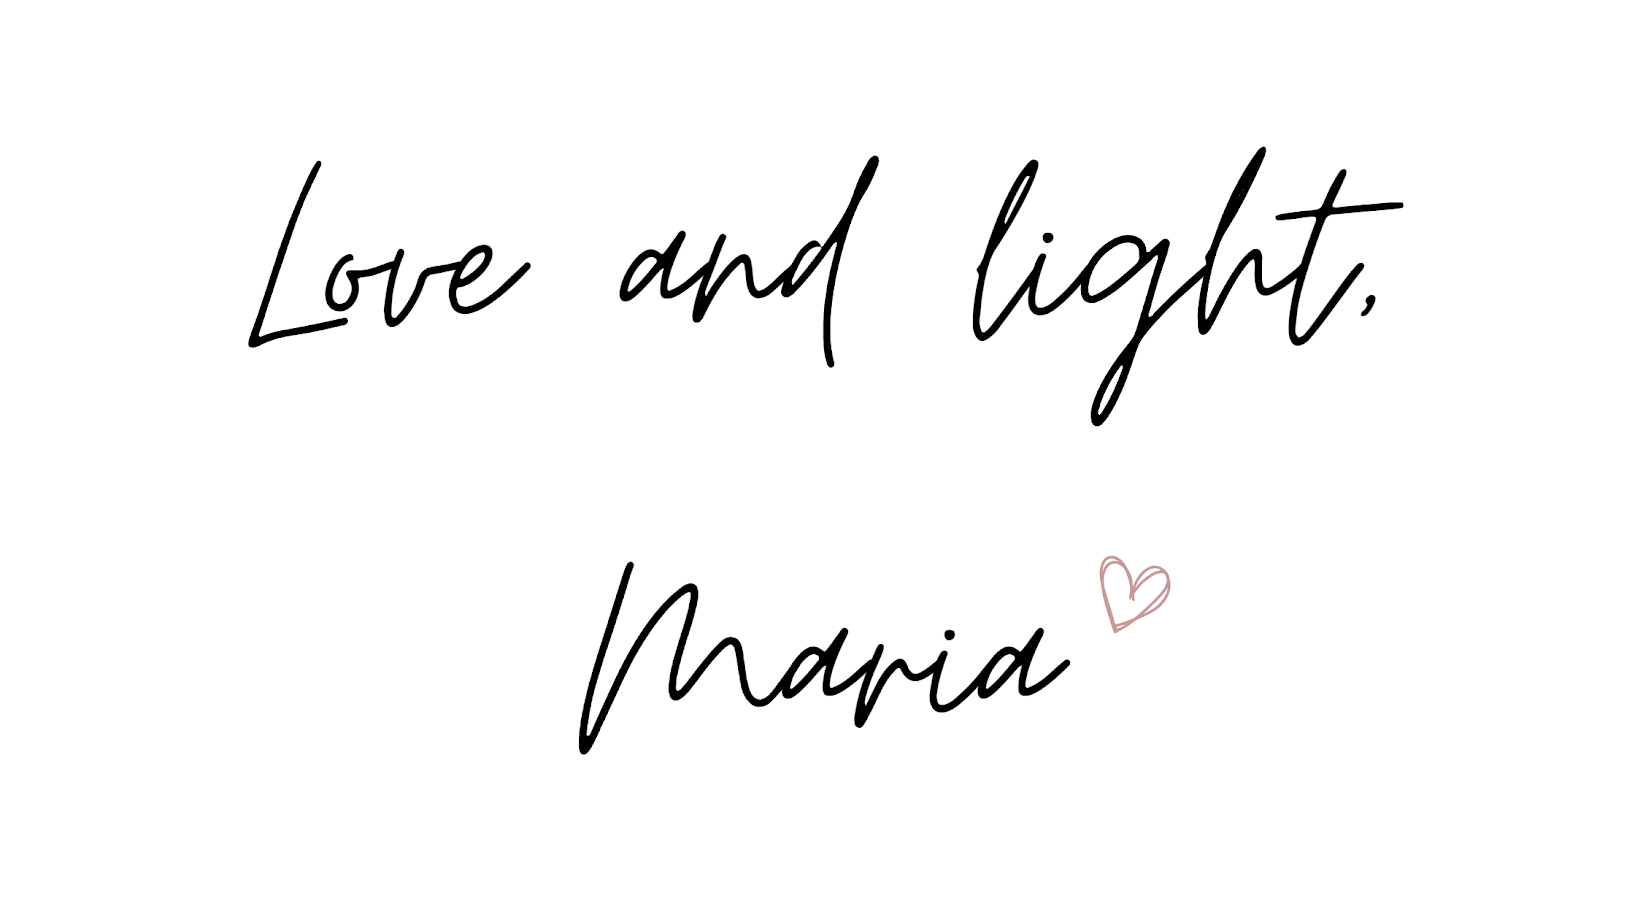 Love and light,
Maria